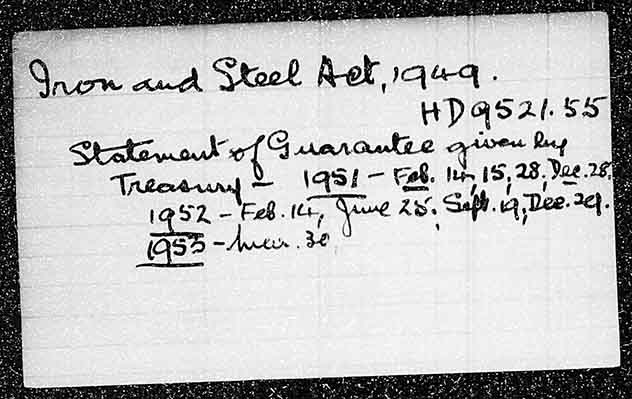 Iron and Steel Act, 1949.
HD9521.55
Statement of Guarantee given by
Treasury - 1951 - Feb. 14, 15, 28, Dec. 28.
1952 - Feb. 14, June 25, Sept. 19, Dec. 29.
1953 - Mar. 30